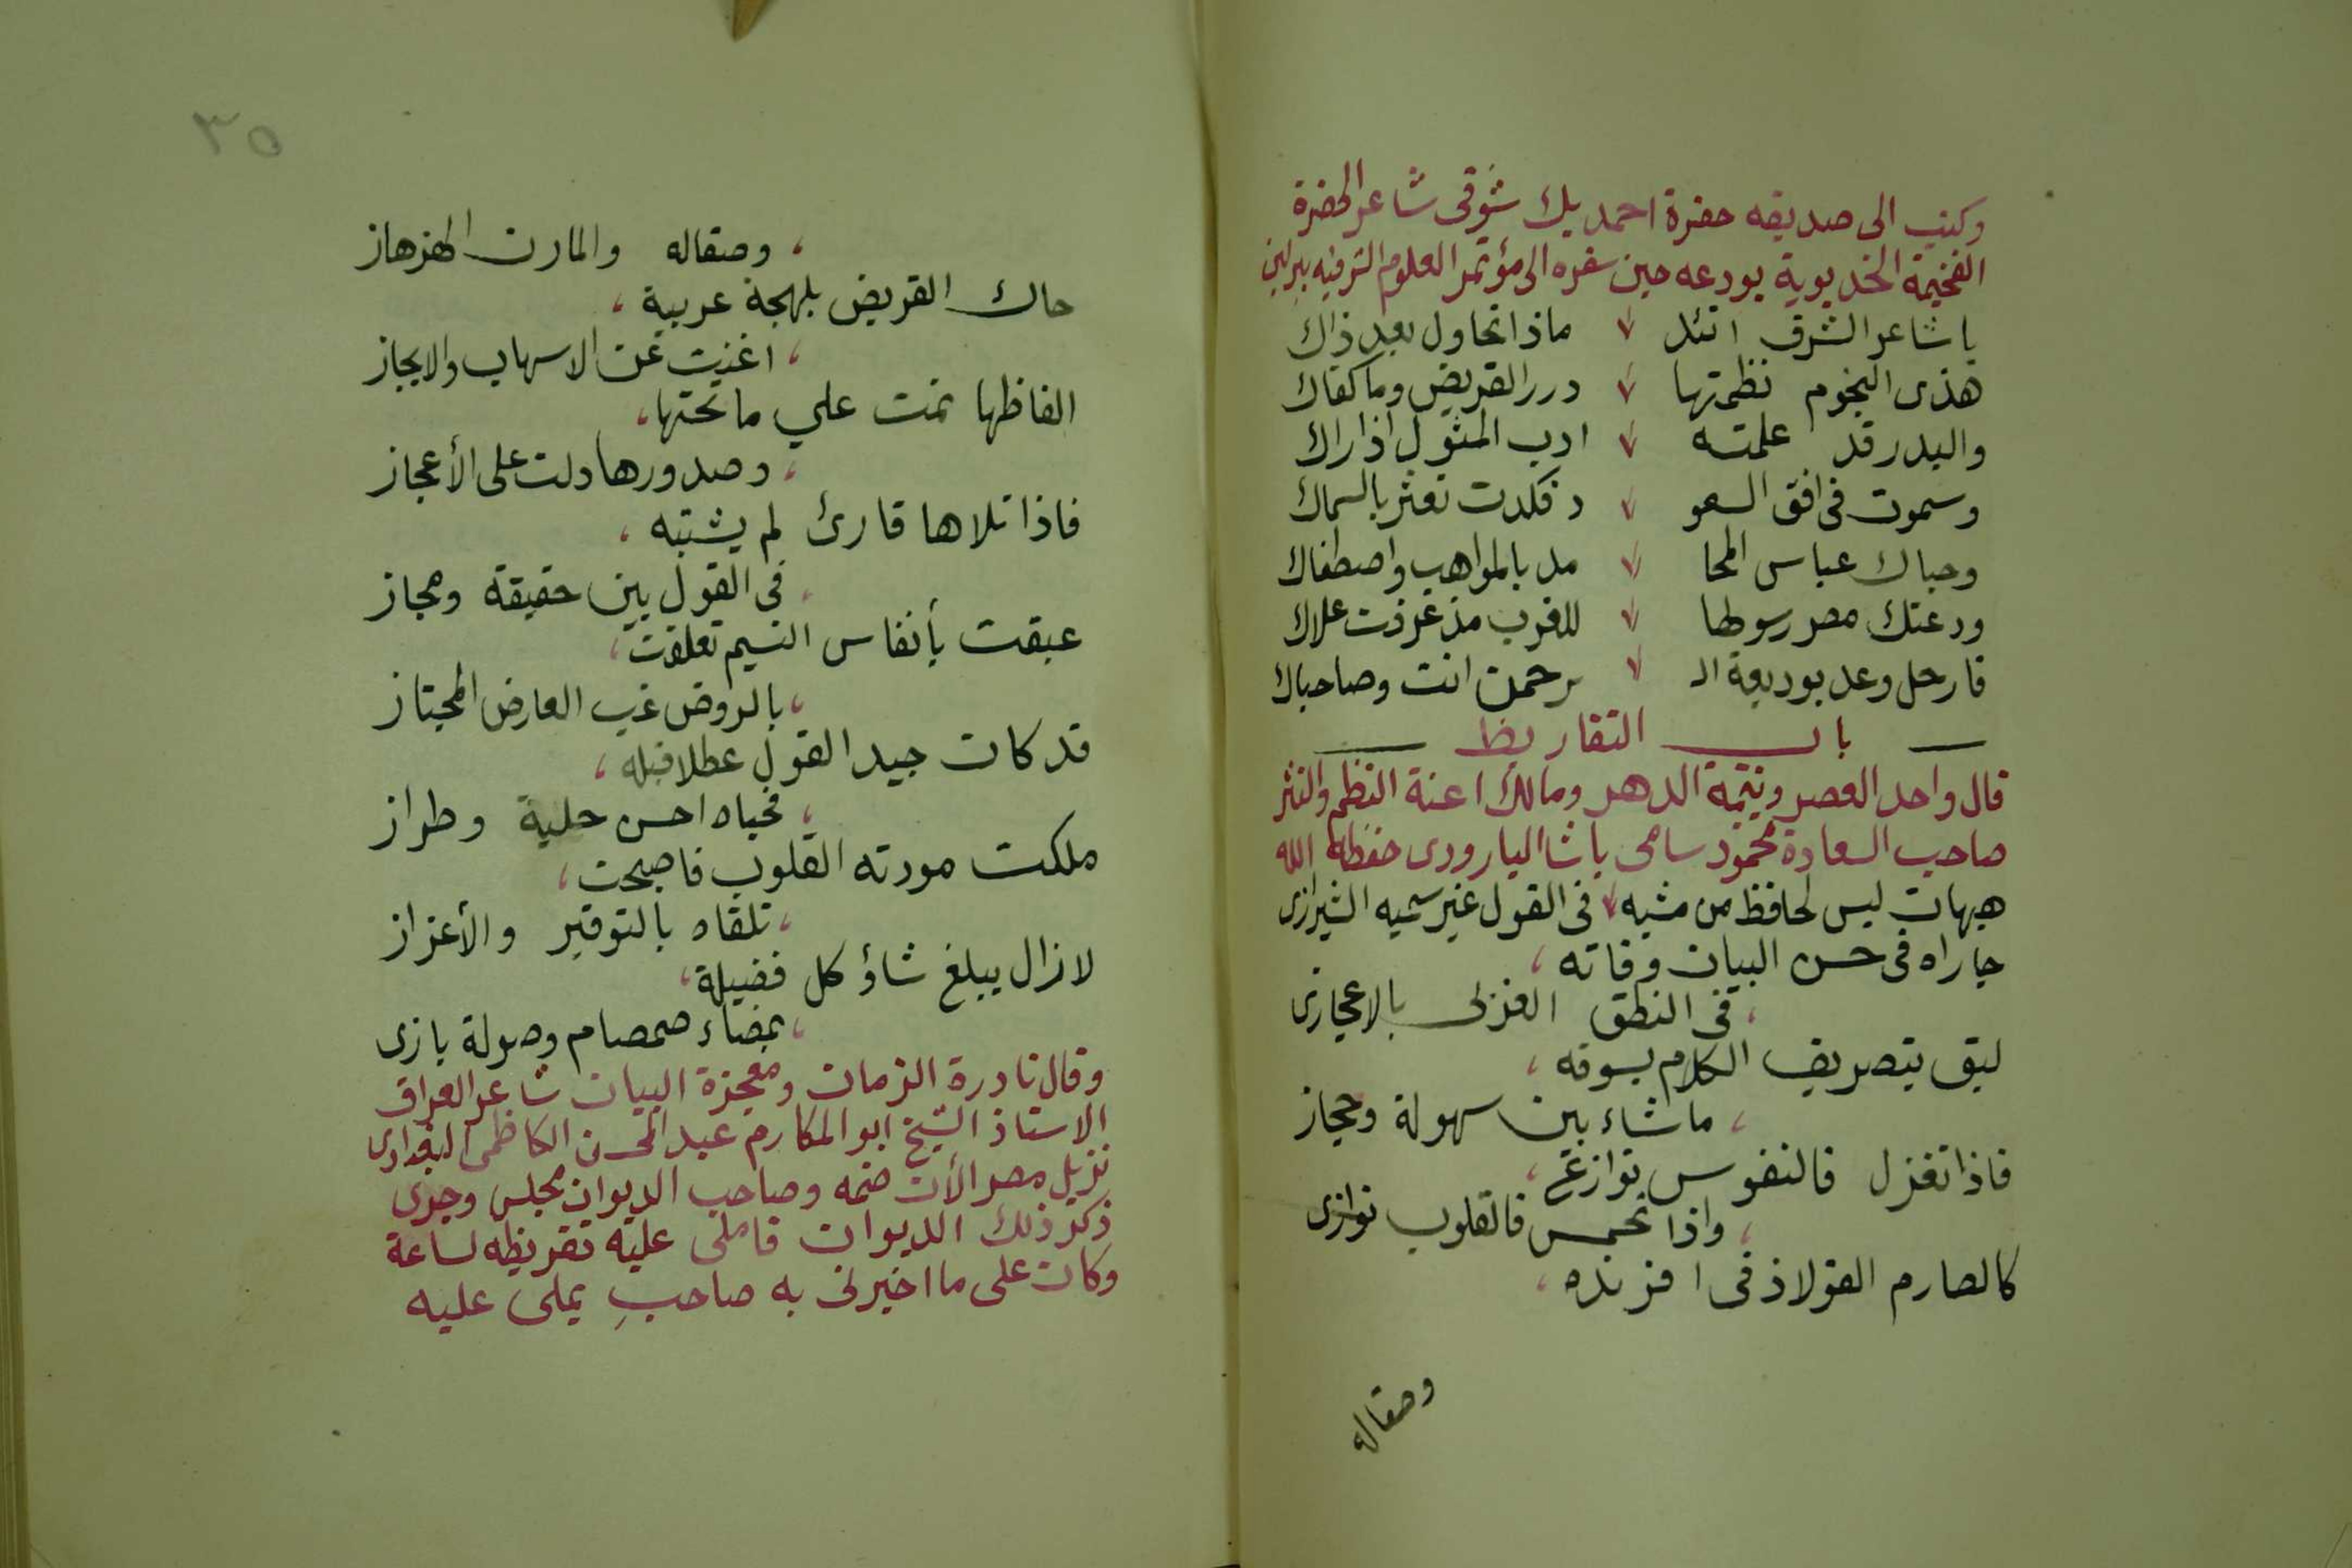 وكتب الى صديقه حضرة احمد بك شوقى شاعر الحضرة
الفخيمة الخديوية يودعه حين سفره الى مؤتمر العلوم الشرقيه ببرلين
يا شاعر الشرق اتئد ماذا تحاول بعد ذاك
هذى النجوم نظمتها درر القريض وما كفاك
والبدر قد علمته ادب المثول اذا راك
وسموت فى افق السعو د فكدت تعثر بالسماك
وحباك عباس المحا مد بالمواهب واصطفاك
ودعتك مصر رسولها للغرب مذ عرفت علاك
فارحل وعد بوديعة الـ ـرحمن انت وصاحباك
باب التقاريظ
قال واحد العصر ويتيمة الدهر ومالك اعنة النظم والنثر
صاحب السعادة محمود سامى باشا البارودى حفظه الله
هيهات ليس لحافظ من مشبه فى القول غير سميه الشيرازى
جاراه فى حسن البيان وفاته ،
، فى النطق الغزلى بالاعجازى
لبق بتصريف الكلام يسوقه ،
، ما شاء بين سهولة وحجاز
فاذا تغزل فالنفوس نوازع ،
، واذا تحمس فالقلوب نوازى
كالصارم الفولاذ فى افرنده ،
وصقاله
٣٥
، وصقاله والمارن الهزهاز
حاك القريض بلهجة عربية ،
، اغنيت عن الاسهاب والايجاز
الفاظها نمت على ما تحتها ،
، وصدورها دلت على الأعجاز
فاذا تلاها قارئ لم يشتبه ،
، فى القول بين حقيقة ومجاز
عبقت بأنفاس النسيم تعلقت ،
، بالروض غب العارض المجتاز
قد كان جيد القول عطلا قبله ،
، فحباه احسن حلية وطراز
ملكت مودته القلوب فاصبحت ،
، تلقاه بالتوقير والأعزاز
لا زال يبلغ شاؤ كل فضيلة ،
، بمضاء صمصام وصولة بازى
وقال نادرة الزمان ومعجزة البيان شاعر العراق
الاستاذ الشيخ ابو المكارم عبد المحسن الكاظمى البغدادى
نزيل مصر الأن ضمه وصاحب الديوان مجلس وجرى
ذكر ذلك الديوان فاملى عليه تقريظه لساعة
وكان على ما اخبرنى به صاحب يملى عليه